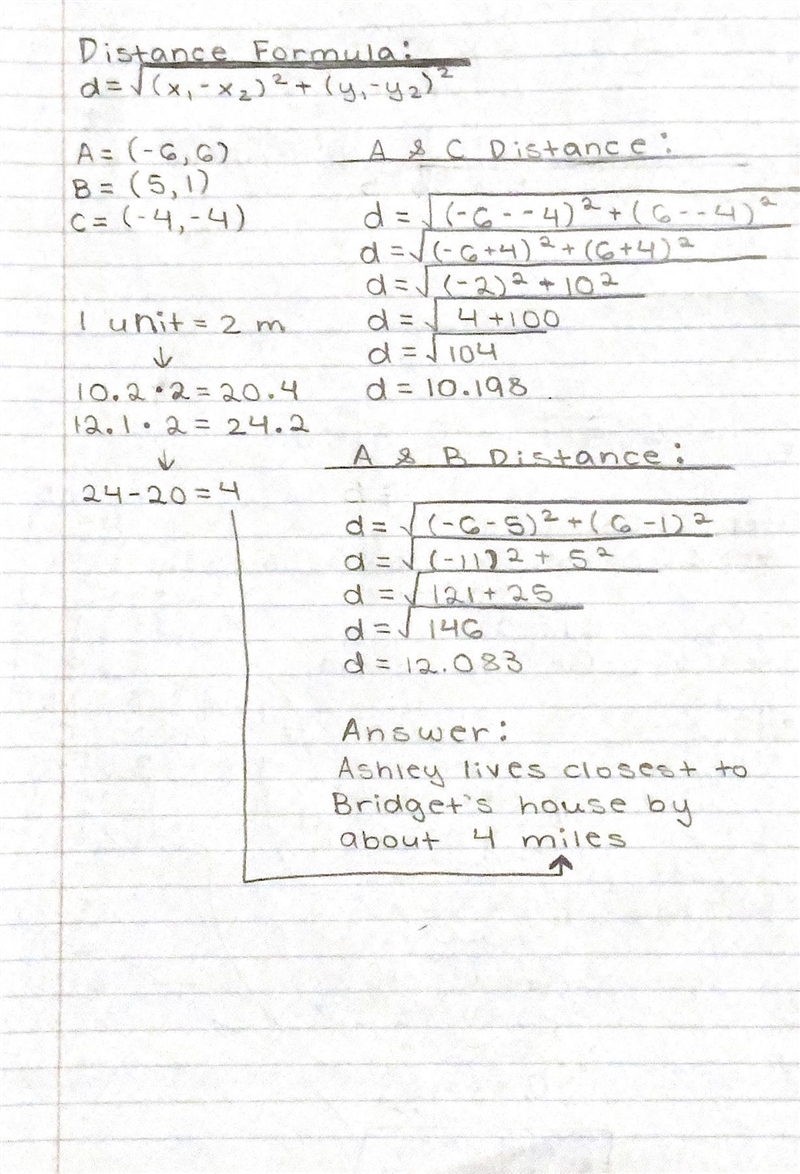 Distance Formula:
d=√(x₁-x₂)²+(y₁-y₂)²
A=(-6,6)
B=(5,1)
C=(-4,-4)
1 unit=2 m
↓
10.2·2=20.4
12.1·2=24.2
↓
24-20=4
A & C Distance:
d=√(-6--4)²+(6--4)²
d=√(-6+4)²+(6+4)²
d=√(-2)²+10²
d=√4+100
d=√104
d=10.198
A & B Distance:
d=√(-6-5)²+(6-1)²
d=√(-11)²+5²
d=√121+25
d=√146
d=12.083
Answer:
Ashley lives closest to
Bridget's house by
about 4 miles